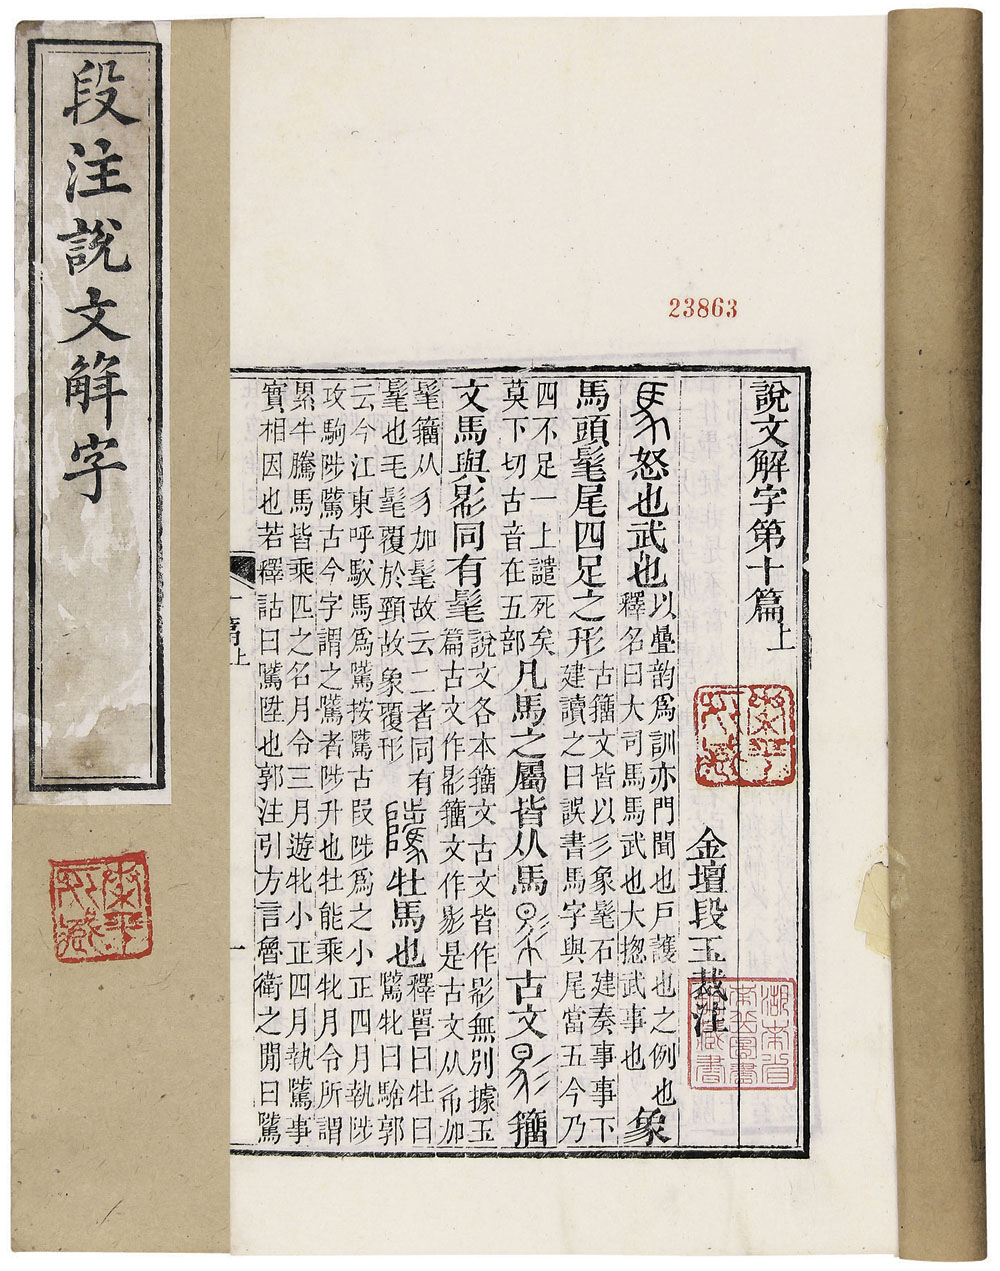 段注說文解字
23863
說文解字第十篇上
金壇段玉裁注
馬怒也武也以疊韵爲訓亦門聞也戶護也之例也
釋名曰大司馬馬武也大揔武事也象
馬頭髦尾四足之形古籒文皆以彡象髦石建奏事事下
建讀之曰誤書馬字與尾當五今乃
四不足一上譴死矣
莫下切古音在五部凡馬之屬皆从馬𢒠古文𢒠籒
文馬與𢒠同有髦說文各本籒文古文皆作𢒠無別據玉
篇古文作𢒠籒文作𢒠是古文从加
髦籒从豸加髦故云二者同有
髦也毛髦覆於頸故象覆形騭牡馬也釋嘼曰牡曰
騭牝曰騇郭
云今江東呼馭馬爲騭按騭古叚陟爲之小正四月執陟
攻駒陟騭古今字謂之騭者陟升也牡能乘牝月令所謂
累牛騰馬皆乘匹之名月令三月遊牝小正四月執騭事
實相因也若釋詁曰騭陞也郭注引方言層衞之閒曰騭
一篇上
一